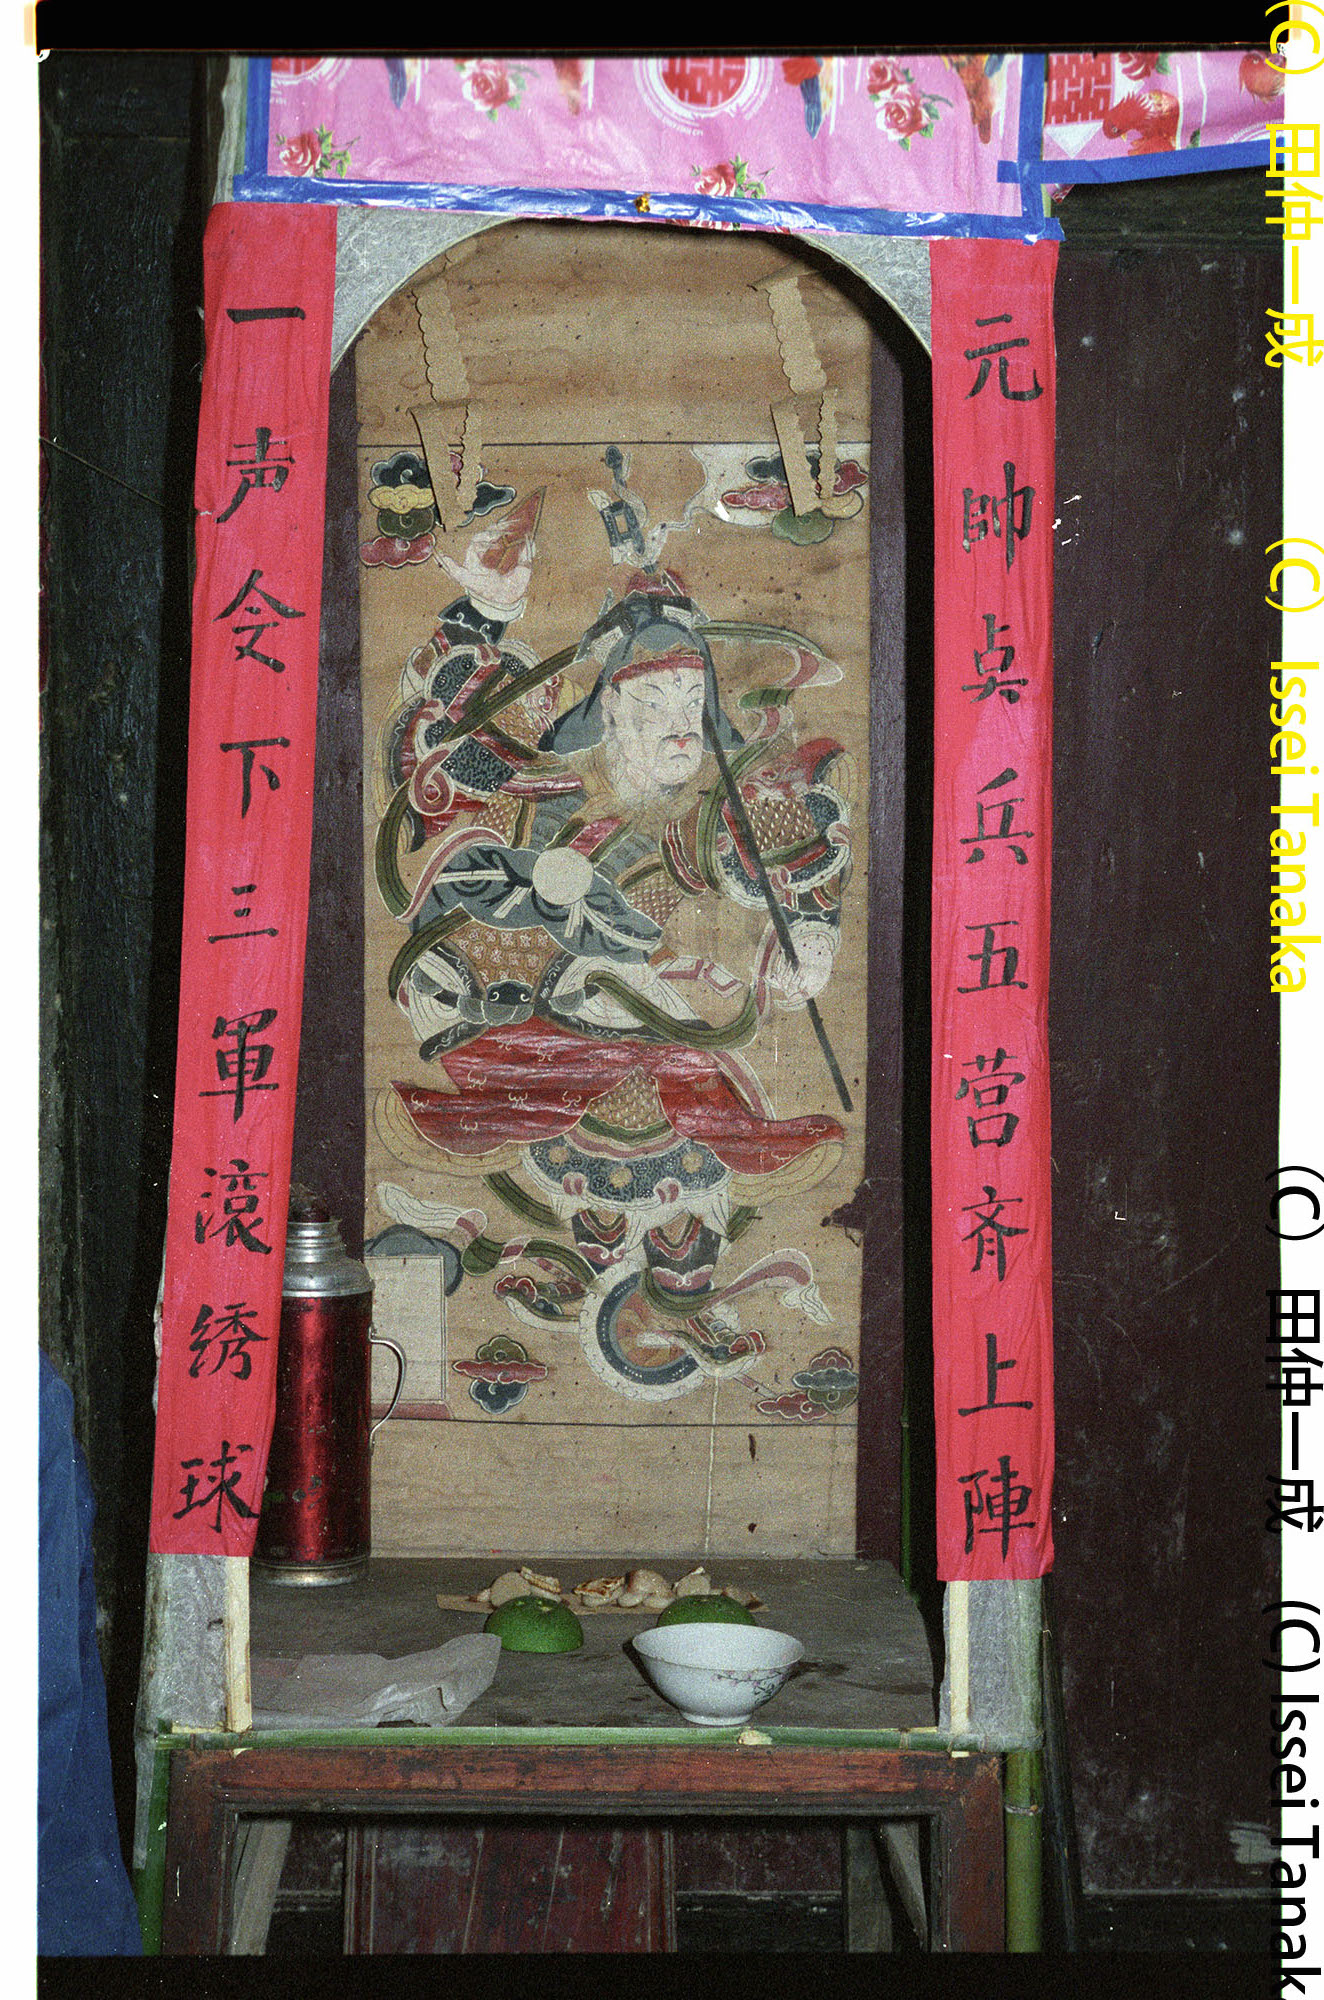 元帥点兵五营斉上陣
一声令下三軍滚绣球
(C) 田仲一成 (C) Issei Tanaka
(C) 田仲一成 (C) Issei Tanak